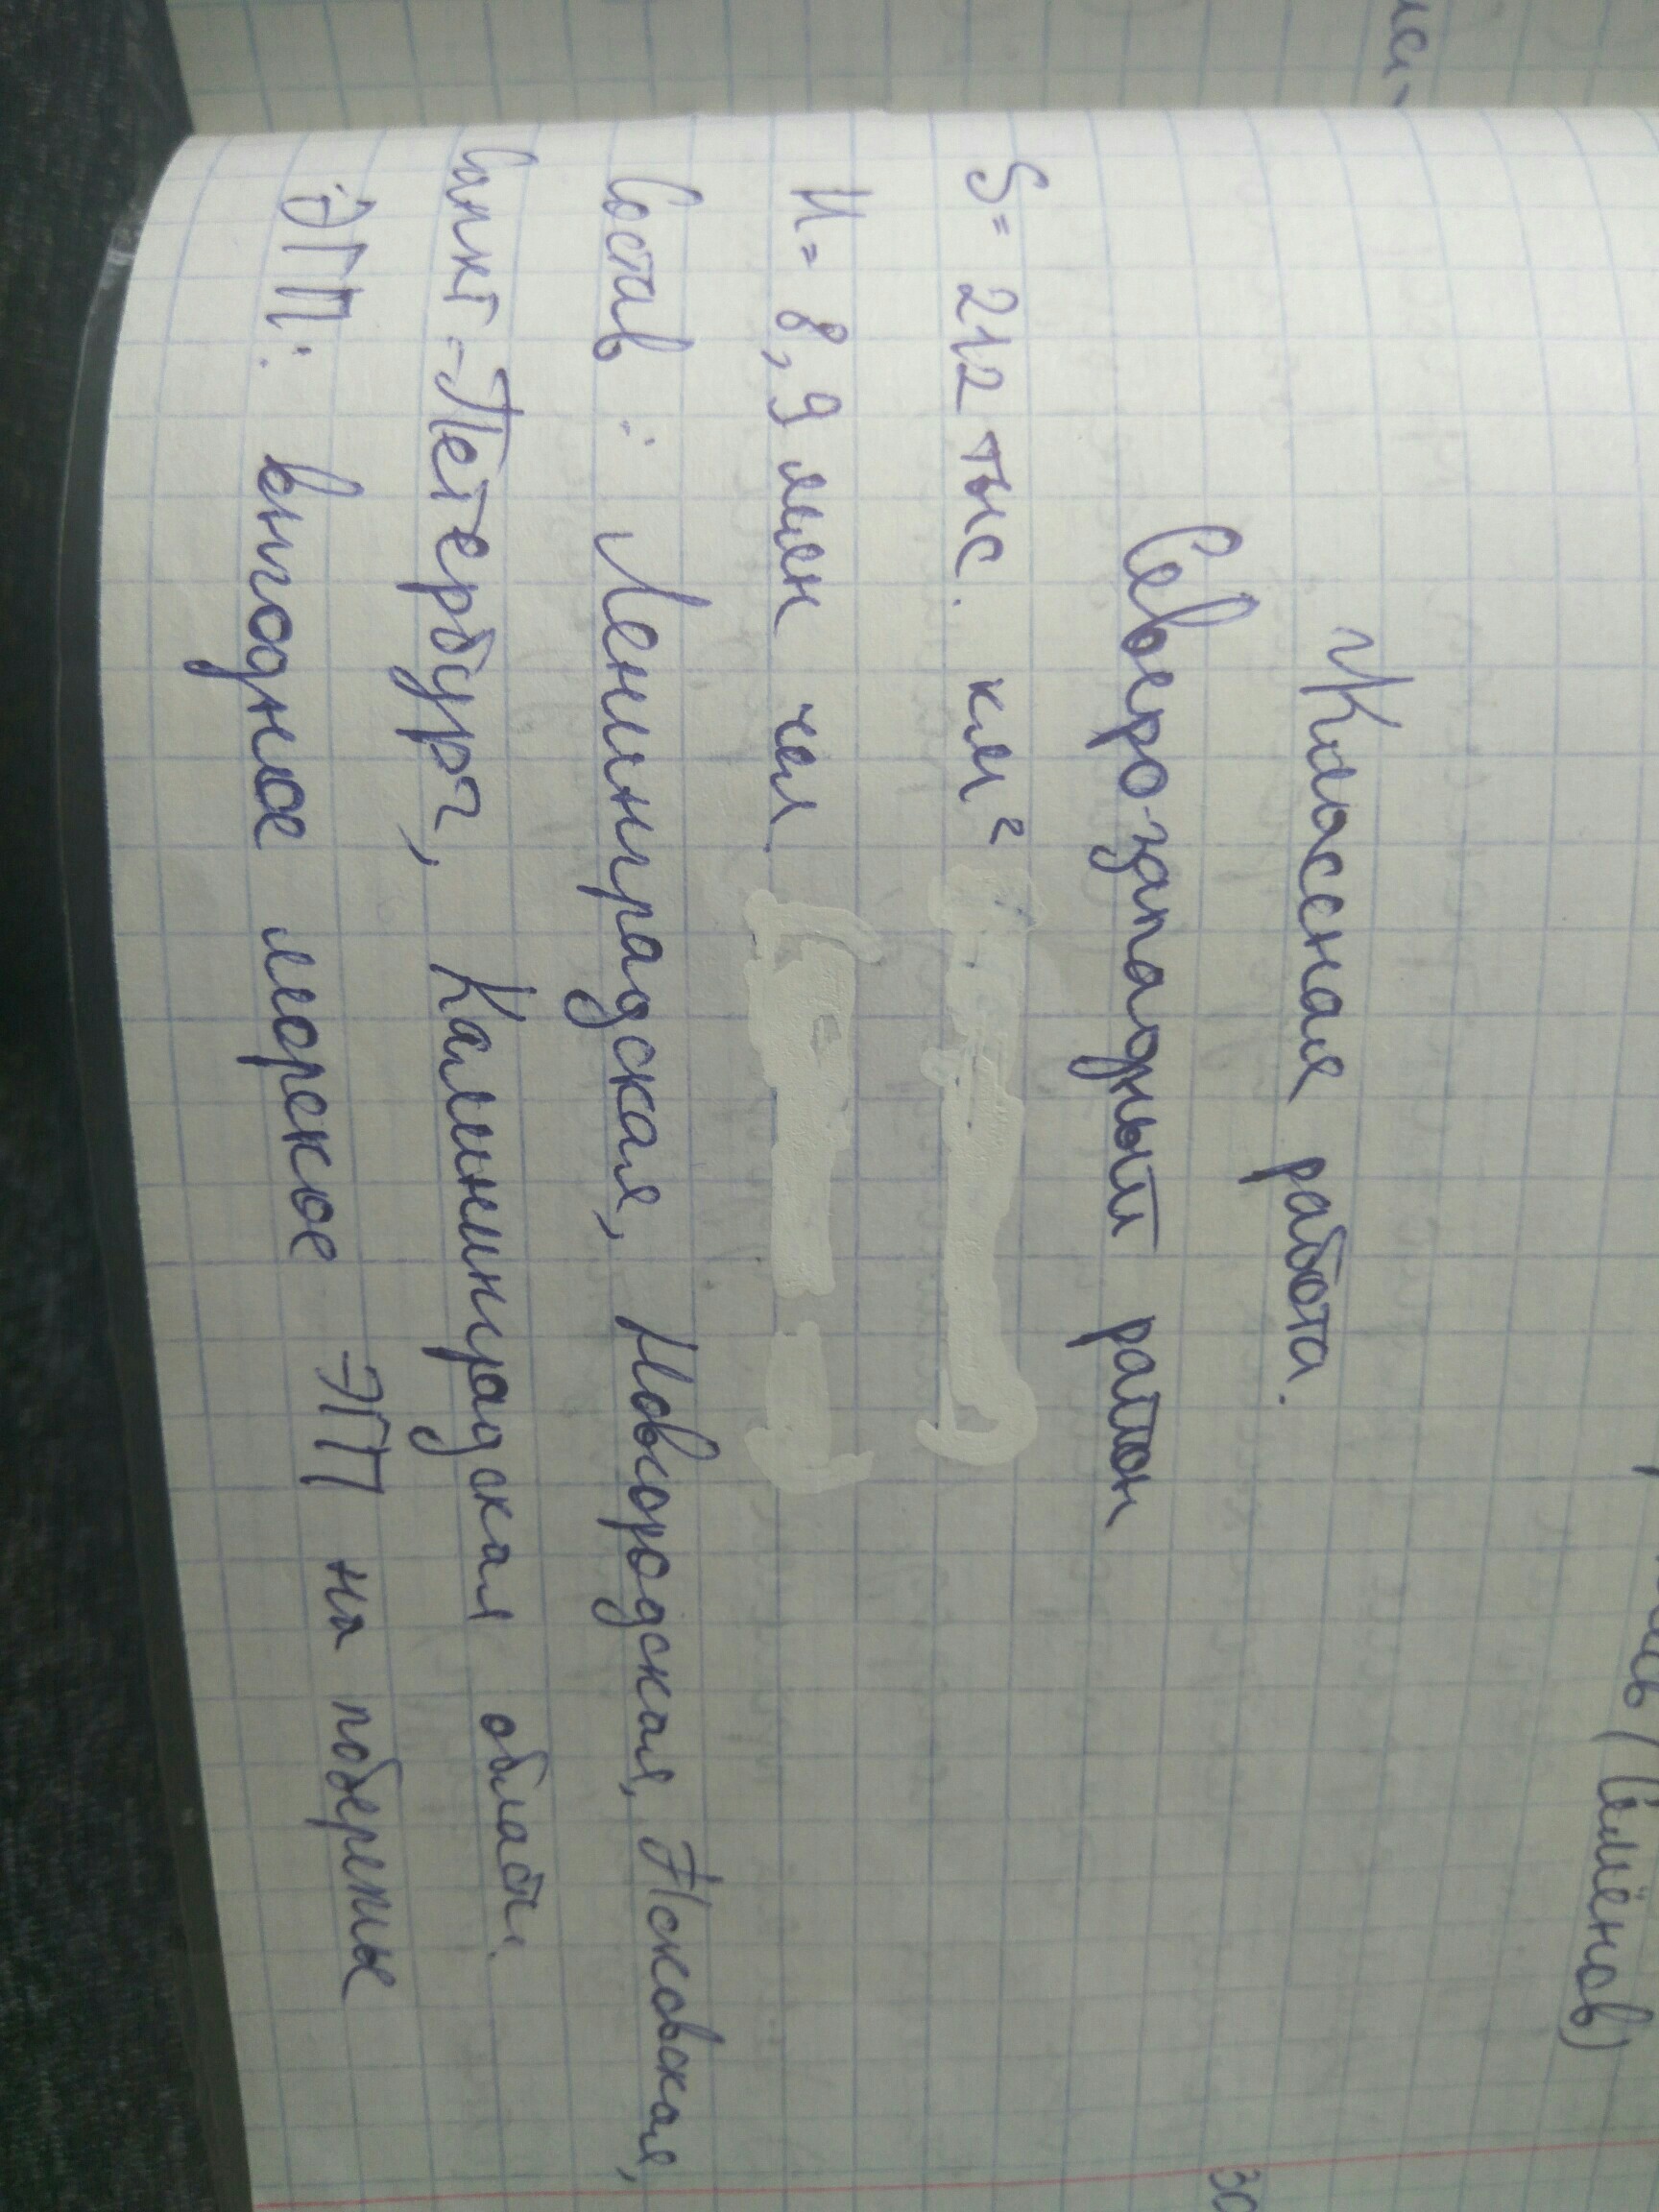 Семёнов)
30
Классная работа.
Северо-западный район
S= 212 тыс. км²
Н= 8,9 млн чел.
Состав: Ленинградская, Новгородская, Псковская,
Санкт-Петербург, Калининградская области.
ЭГП: выгодное морское ЭГП на побережье